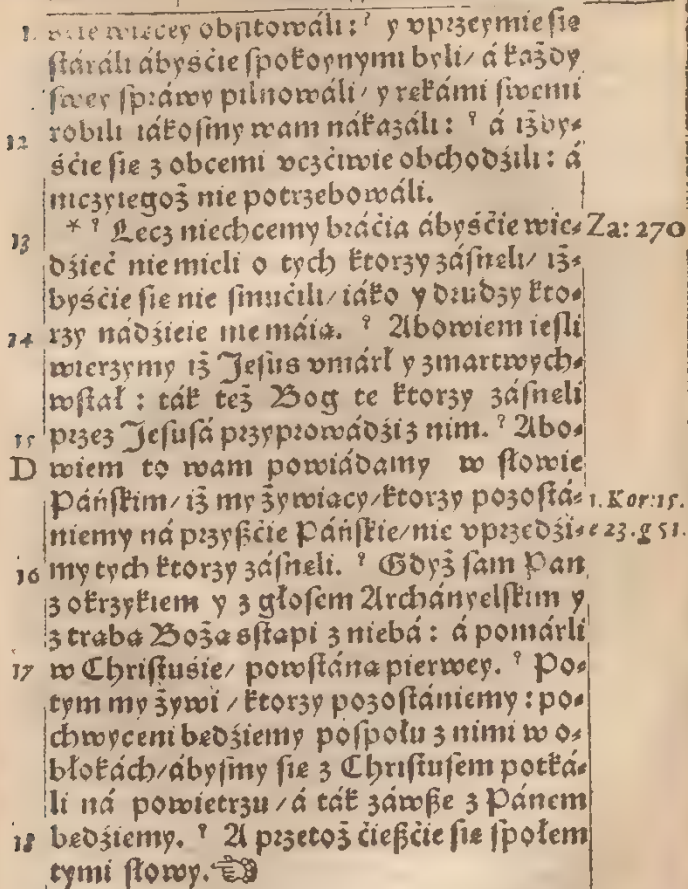 więcey obfitowáli: ˀ y vprzeymie się
stáráli ábyśćie spokoynymi byli/ á każdy
swey spráwy pilnowáli/ y rękámi swemi
12 robili iákosmy wam nákazáli: ˀ á iżby-
śćie się z obcemi vczćiwie obchodźili: á
niczyiegoż nie potrzebowáli.
13 * ˀ Lecz niechcemy bráćia ábyśćie wie- Za: 270
dźieć nie mieli o tych ktorzy zásnęli/ iż-
byśćie się nie smućili/ iáko y drudzy kto-
14 rzy nádźieie nie máią. ˀ Abowiem iesli
wierzymy iż Jesus vmárł y zmartwych-
wstał: ták też Bog te ktorzy zásnęli
15 przez Jesusá przyprowádźi z nim. ˀ Abo-
D wiem to wam powiádamy w słowie
Páńskim/ iż my żywiący/ ktorzy pozostá- 1. Kor: 15.
niemy ná przyszćie Páńskie/ nie vprzedźi- e 23. g 51.
16 my tych ktorzy zásnęli. ˀ Gdyż sam Pan
z okrzykiem y z głosem Archányelskim y
z trąbą Bożą sstąpi z niebá: á pomárli
17 w Christusie/ powstáną pierwey. ˀ Po-
tym my żywi / ktorzy pozostániemy: po-
chwyceni będźiemy pospołu z nimi w o-
błokách/ ábysmy się z Christusem potká-
li ná powietrzu / á ták záwsze z Pánem
18 będźiemy. ˀ A przetoż ćieszćie się społem
tymi słowy. ☜